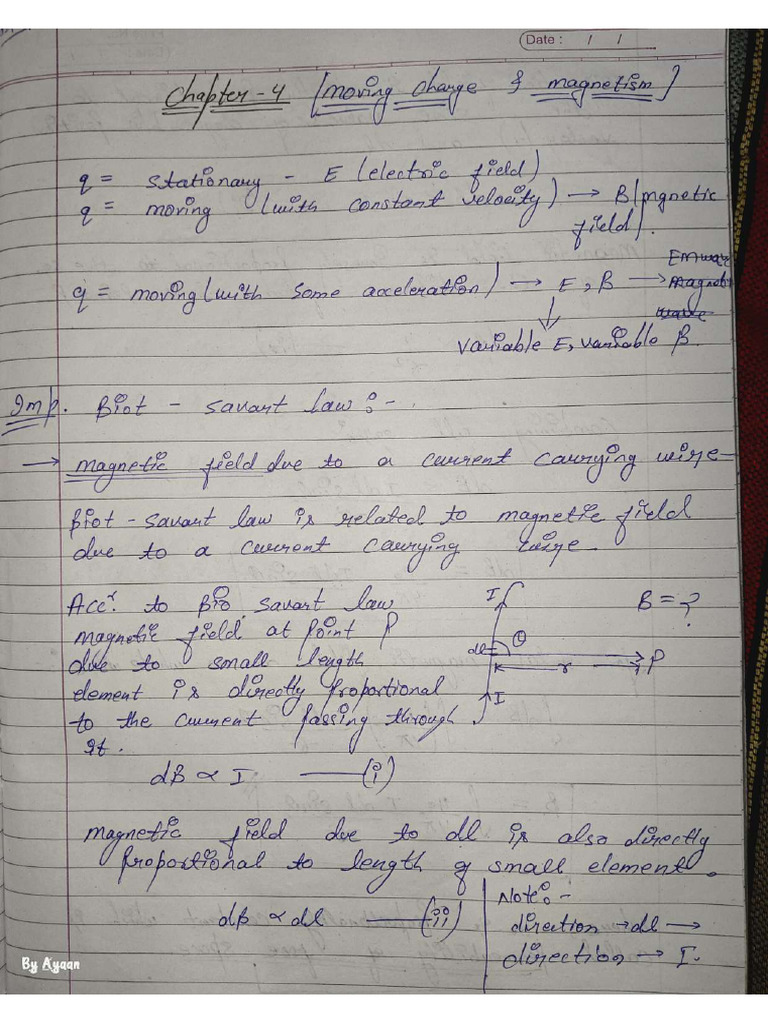 Date : / /
Chapter-4 [moving charge & magnetism]
q = stationary - E (electric field)
q = moving (with constant velocity) → B (mgnetic
field).
q = moving (with some acceleration) → E, B → EM wave
magnetic
wave
variable E, variable B.
Imp. Biot - savart law :-
→ magnetic field due to a current carrying wire-
Biot - savart law is related to magnetic field
due to a current carrying wire-
Acc. to Bio savart law
magnetic field at point P
due to small length
element is directly proportional
to the current passing through
It.
I
B = ?
dl
θ
r
P
I
dB ∝ I —— (i)
magnetic field due to dl is also directly
proportional to length of small element.
dB ∝ dl —— (ii)
Note :-
direction → dl →
direction → I.
By Ayaan